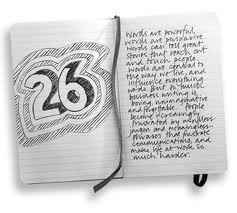 26
Words are powerful,
words are persuasive
words can tell great
stories that reach out
and touch people.
Words are central to
the way we live, and
influence everything
we do. But in business
business writing is
boring, unimaginative
and forgettable. People
become increasingly
frustrated by mindless
jargon and meaningless
phrases that clutter
communications, and
make life at work so
much harder.